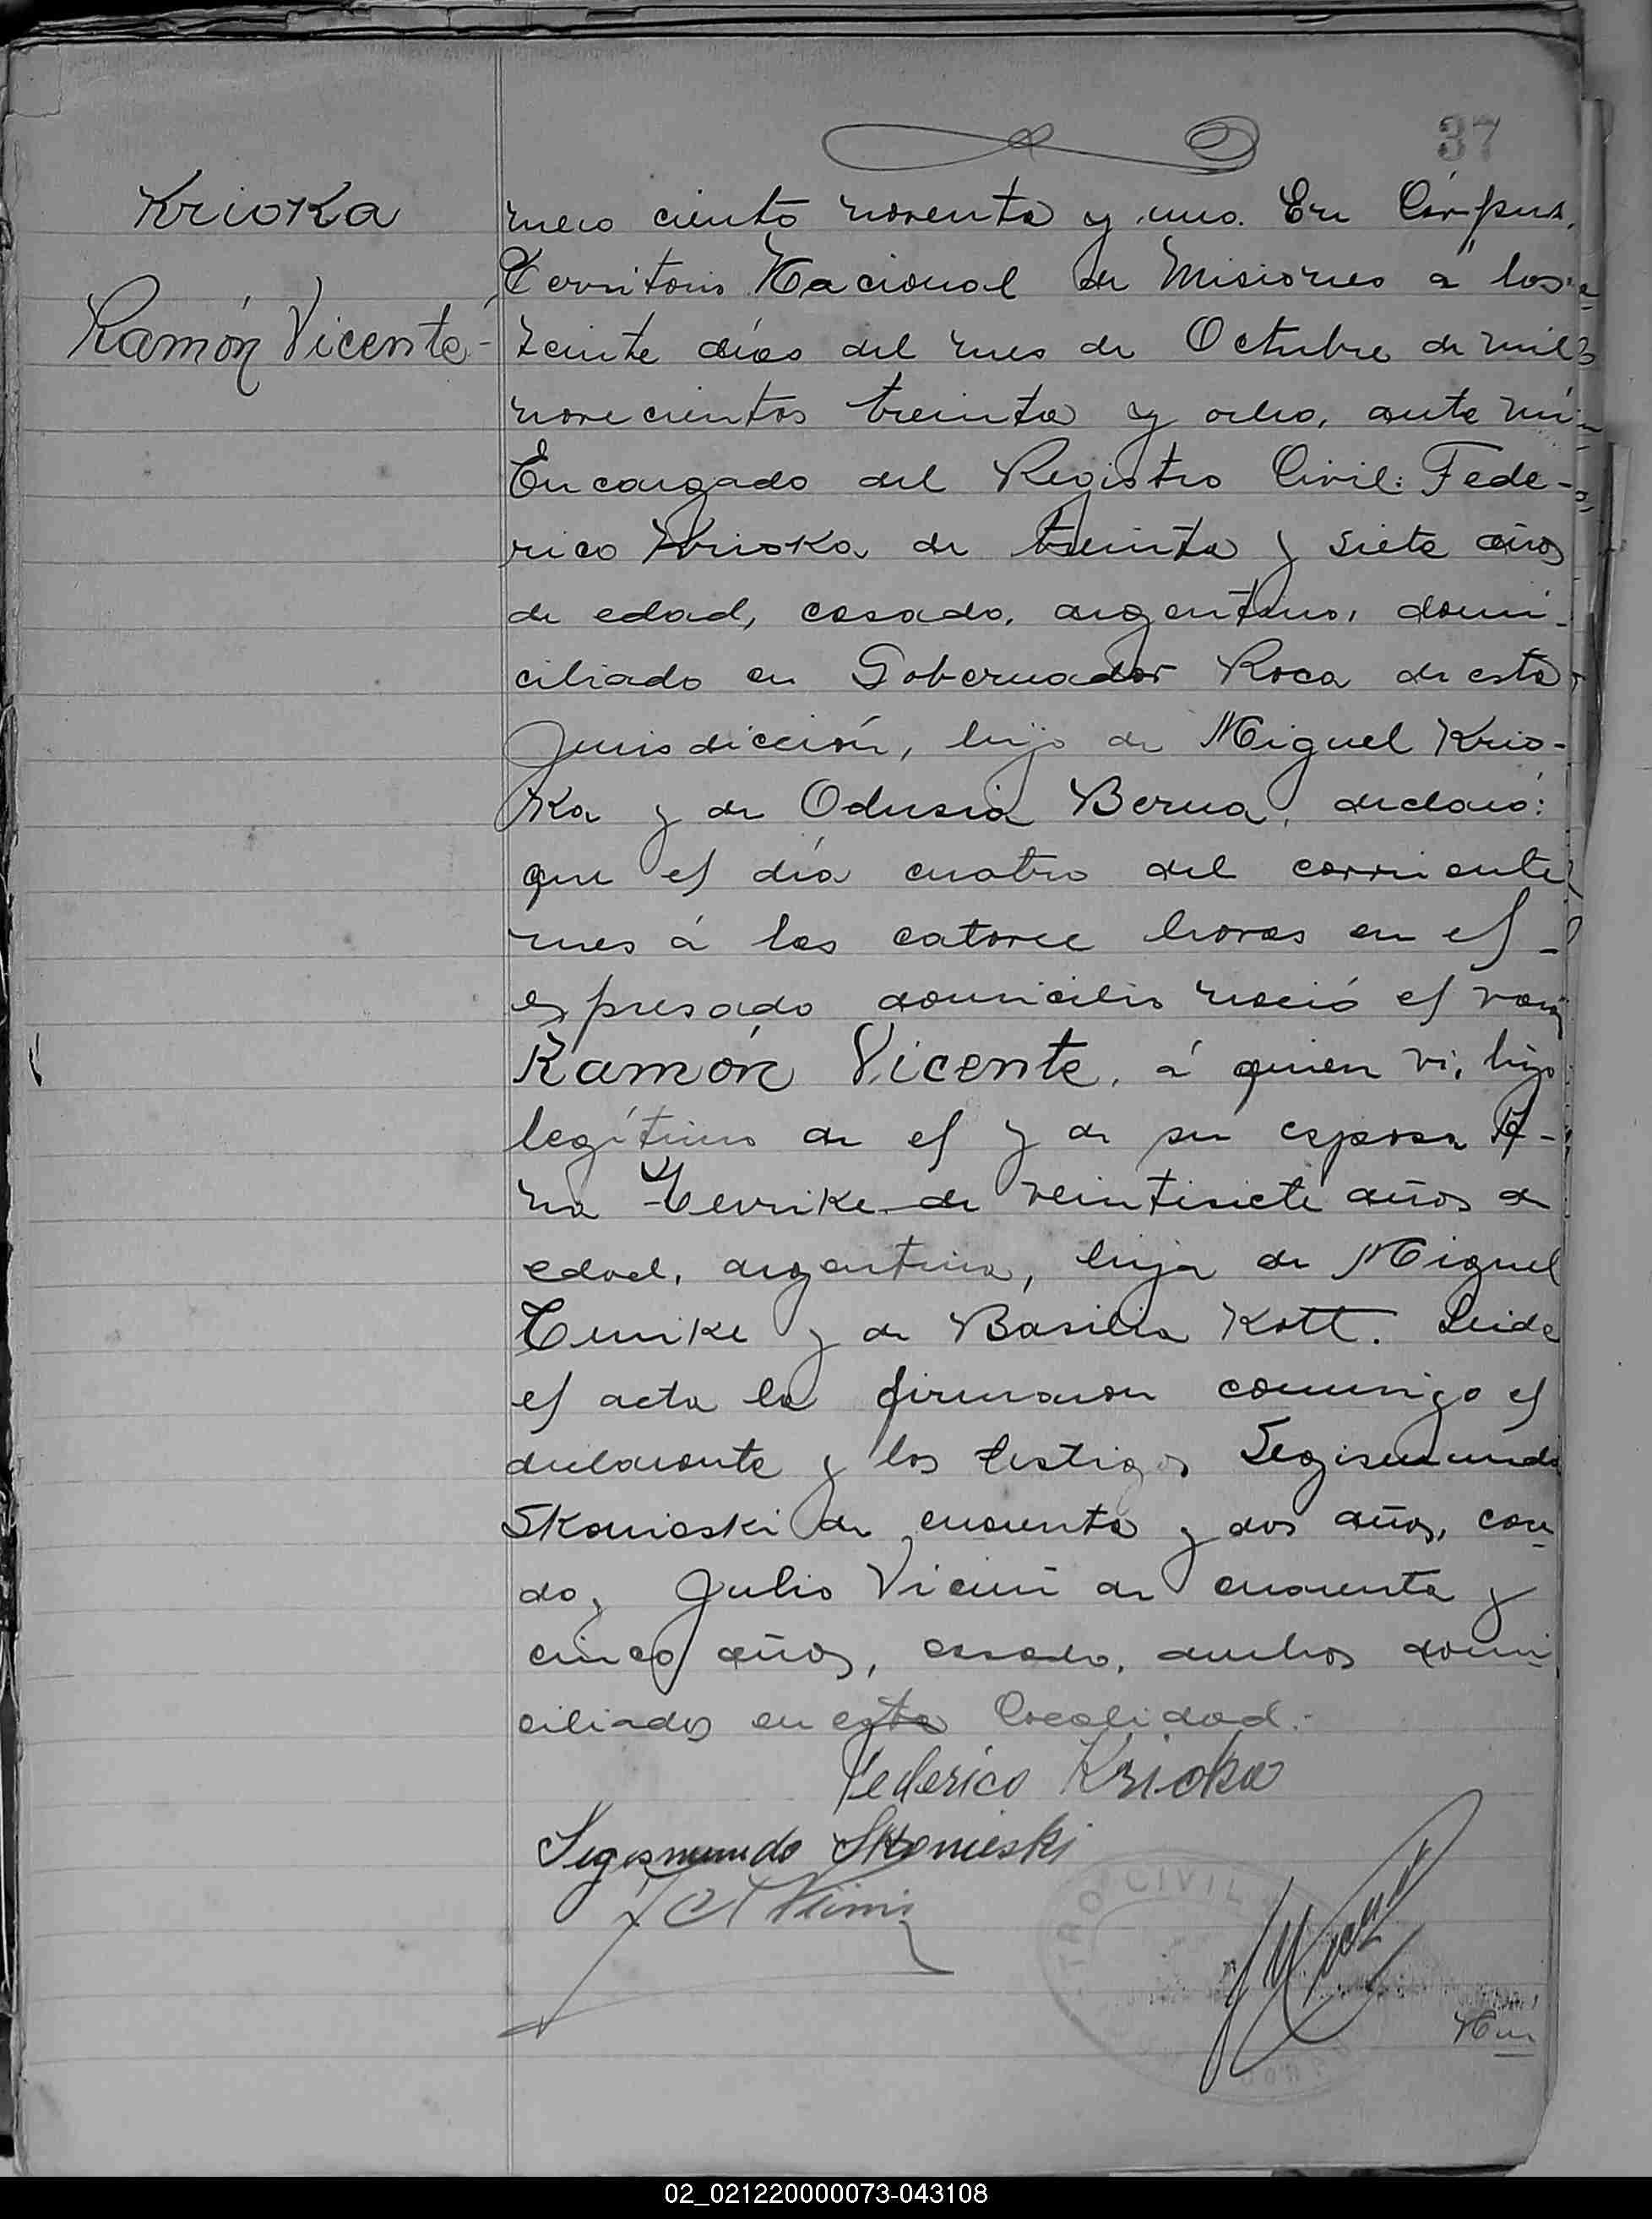 37
Krioka
Ramón Vicente-
mero ciento noventa y uno. En Corpus,
Territorio Nacional de Misiones a los
veinte días del mes de Octubre de mil
novecientos treinta y ocho, ante mí
Encargado del Registro Civil: Fede-
rico Krioka de treinta y siete años
de edad, casado, argentino, domi-
ciliado en Gobernador Roca de esta
Jurisdicción, hijo de Miguel Krio-
ka y de Odusia Berna, declaró:
que el día cuatro del corriente
mes á las catorce horas en el
expresado domicilio nació el varón
Ramón Vicente, á quien vi, hijo
legítimo de el y de su esposa A-
na de veintisiete años de
edad, argentina, hija de Miguel
y de Basilia Kott. Leida
el acta la firmaron conmigo el
declarante y los testigos Segismundo
Skanieski de cuarenta y dos años, casa-
do, Julio de cuarenta y
cinco años, casado, ambos domi
ciliados en esta localidad.-
Federico Krioka
Segismundo Skonieski
TRO CIVIL
Nú
02_021220000073-043108